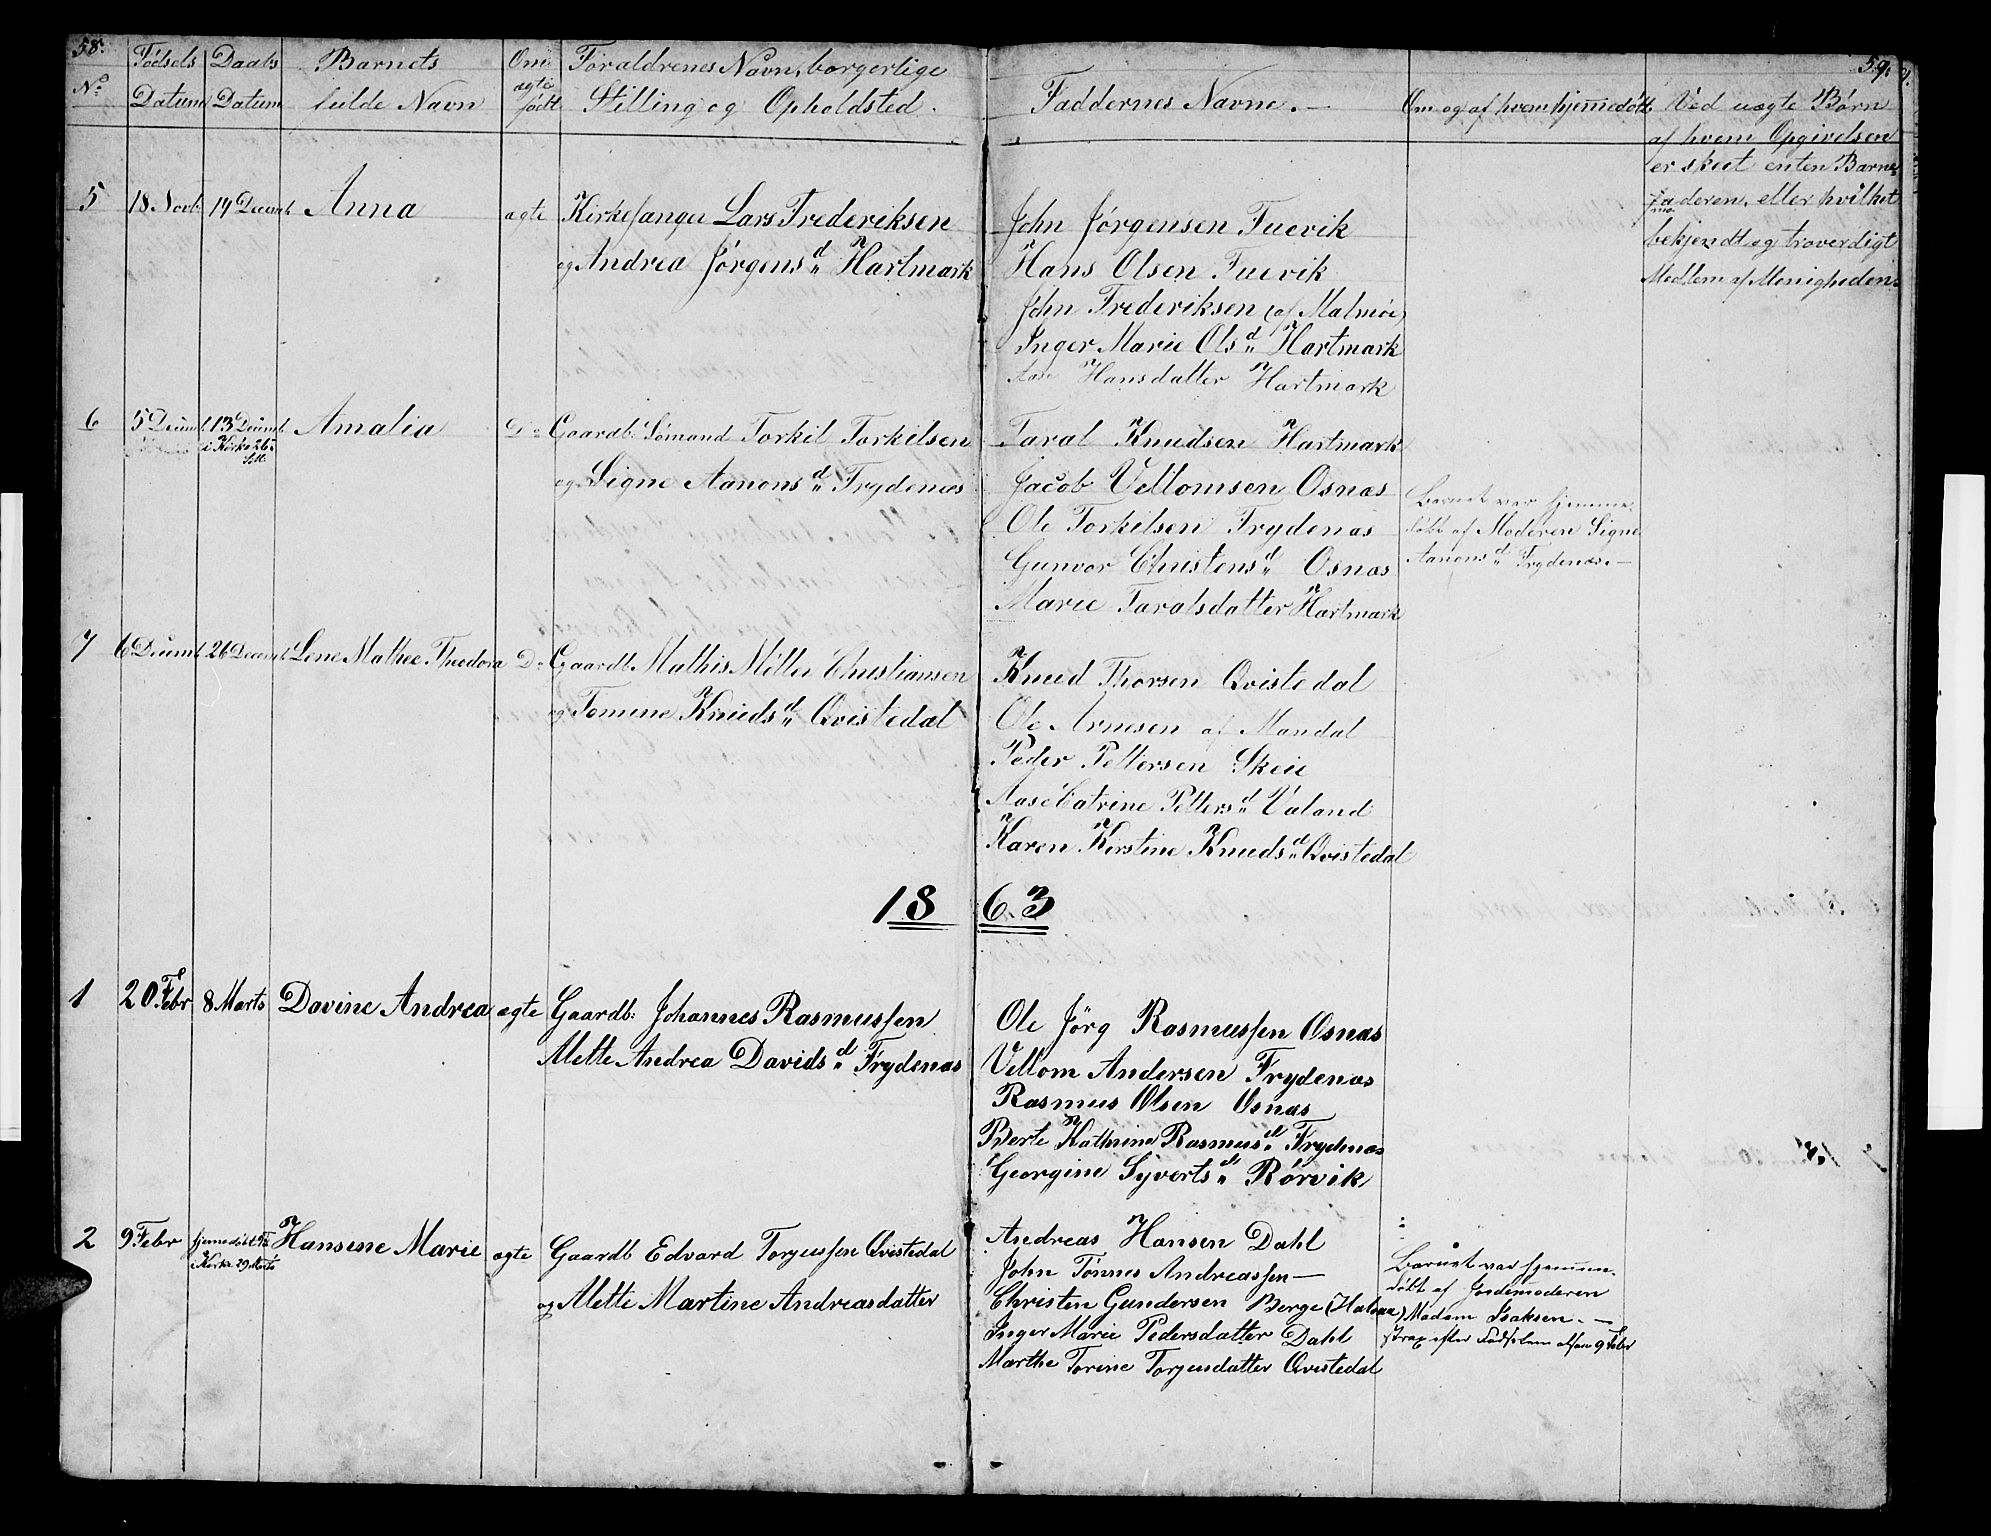 58.
No
Fødsels Datum
Daabs Datum
Barnets fulde Navn
Om ægte født
Forældrenes Navn, borgerlige Stilling og Opholdsted.
Faddernes Navne.
Om og af hvem hjemmedøbt
59.
Ved uægte Børn
af hvem Opgivelsen
er skeet enten Barne
faderen, eller hvilket
bekjendt og troverdigt
Medlem af Menigheden.
5 18 Novb 14 Decemb. Anna ægte Kirkesanger Lars Frederiksen
og Andrea Jørgensd Hartmark
John Jørgensen Fuevik
Hans Olsen Fuevik
John Frederiksen (af Malmöe)
Inger Marie Olsd Hartmark
Aase Hansdatter Hartmark
6 5 Decemb. 13 Decemb. i Kirke 26 Amalia Do Gaardb. Sømand Torkil Torkilsen
og Signe Aanonsd Frydenæs
Taral Knudsen Hartmark
Jacob Vellomsen Osnæs
Ole Torkilsen Frydenæs
Gunvor Christensd Osnæs
Marie Taralsdatter Hartmark
Barnet var hjemme-
døbt af Moderen Signe
Aanonsd Frydenæs.
7 6 Decemb. 26 Decemb. Lene Mathee Theodora Do Gaardb. Mathis Miller Christiansen
og Tomine Knudsd Qvistedal
Knud Thorsen Qvistedal
Ole Arnesen af Mandal
Peder Pettersen Skeie
Aase Catrine Pettersd Valand
Karen Kirstine Knudsd Qvistedal
1863
1 20. Febr 8 Marts Davine Andrea ægte Gaardb: Johannes Rasmussen
Mette Andrea Davidsd Frydenæs
Ole Jörg Rasmussen Osnæs
Vellom Andersen Frydenæs
Rasmus Olsen Osnæs
Berte Kathrine Rasmusd Frydenæs
Georgine Syvertsd Rørvik
2 9 Febr hjemedøbt i Kirke 29 Marts Hansine Marie ægte Gaardb Edvard Torjussen Qvistedal
og Mette Martine Andreasdatter
Andreas Hansen Dahl
John Tønnes Andreassen —
Christen Gundersen Berge (Halsaa)
Inger Marie Pedersdatter Dahl
Marthe Torine Torjusdatter Qvistedal
Barnet var hjemme-
døbt af Jordemoderen
Madam Isaksen. —
strax efter Fødselen altsaa 9 Febr